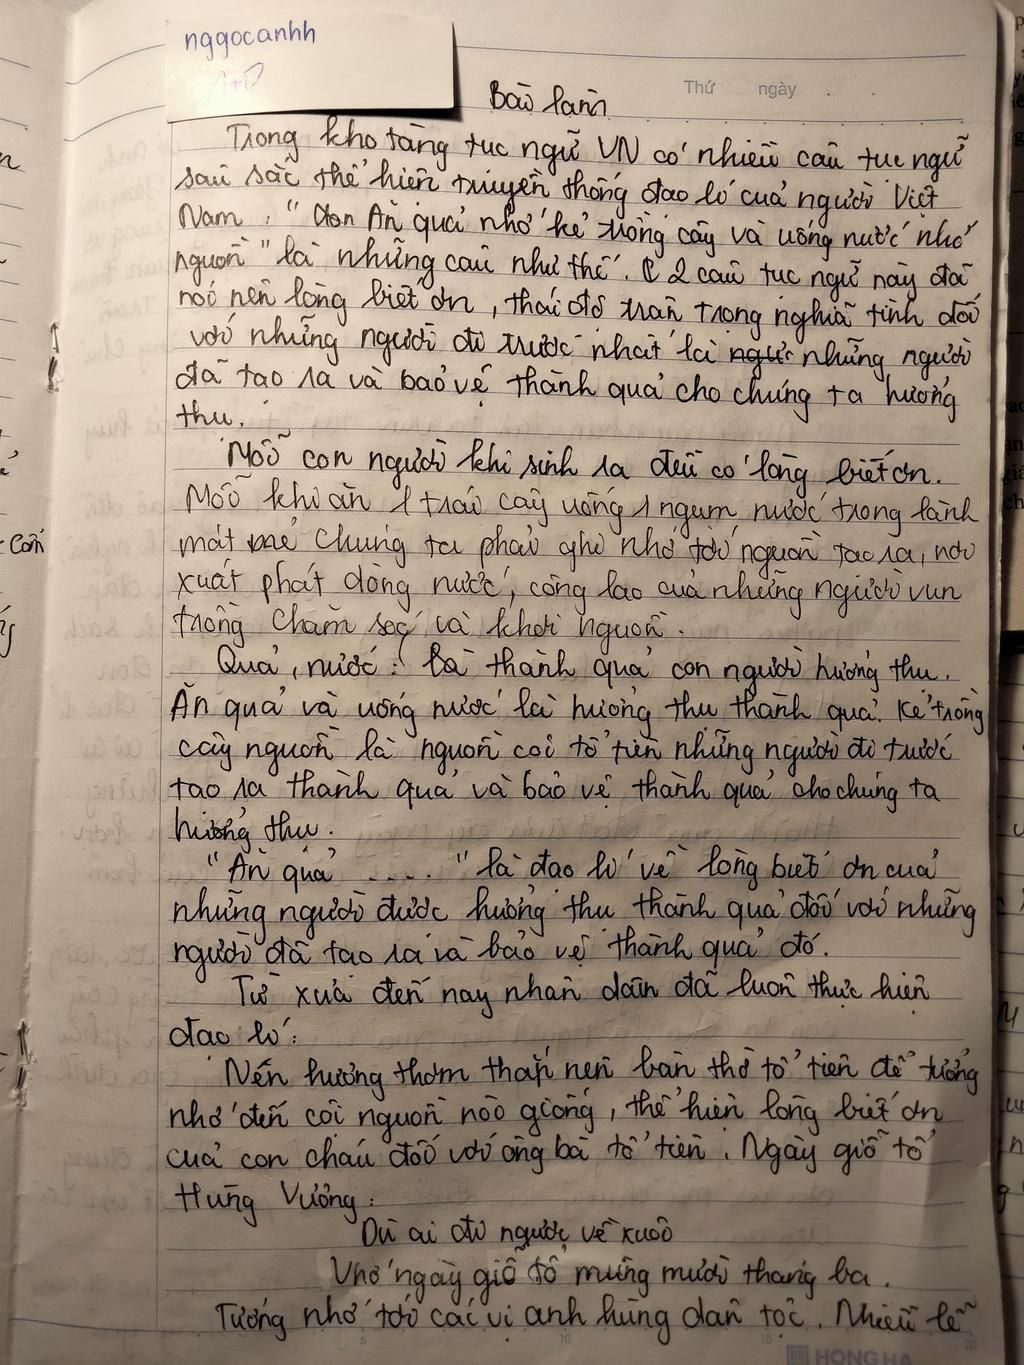 nggocanhh
Thứ ngày . .
Bài làm
Trong kho tàng tục ngữ VN có nhiều câu tục ngữ
sâu sắc thể hiện truyền thống đạo lí của người Việt
Nam. "Ăn quả nhớ kẻ trồng cây và uống nước nhớ
nguồn" là những câu như thế. 2 câu tục ngữ này đã
nói nên lòng biết ơn, thái độ trân trọng nghĩa tình đối
với những người đi trước nhất là những người
đã tạo ra và bảo vệ thành quả cho chúng ta hưởng
thụ.
Mỗi con người khi sinh ra đều có lòng biết ơn.
Mỗi khi ăn 1 trái cây uống 1 ngụm nước trong lành
mát mẻ chúng ta phải ghi nhớ tới nguồn tạo ra, nơi
xuất phát dòng nước, công lao của những người vun
trồng chăm sóc và khơi nguồn.
Quả, nước: Là thành quả con người hưởng thụ.
Ăn quả và uống nước là hưởng thụ thành quả. Kẻ trồng
cây nguồn là nguồn cội tổ tiên những người đi trước
tạo ra thành quả và bảo vệ thành quả cho chúng ta
hưởng thụ.
"Ăn quả ...." là đạo lí về lòng biết ơn của
những người được hưởng thụ thành quả đối với những
người đã tạo ra và bảo vệ thành quả đó.
Từ xưa đến nay nhân dân đã luôn thực hiện
đạo lí:
Nén hương thơm thắp nên bàn thờ tổ tiên để tưởng
nhớ đến cội nguồn nòi giống, thể hiện lòng biết ơn
của con cháu đối với ông bà tổ tiên. Ngày giỗ tổ
Hùng Vương:
Dù ai đi ngược về xuôi
Nhớ ngày giỗ tổ mùng mười tháng ba.
Tưởng nhớ tới các vị anh hùng dân tộc. Nhiều lễ
HONG HA